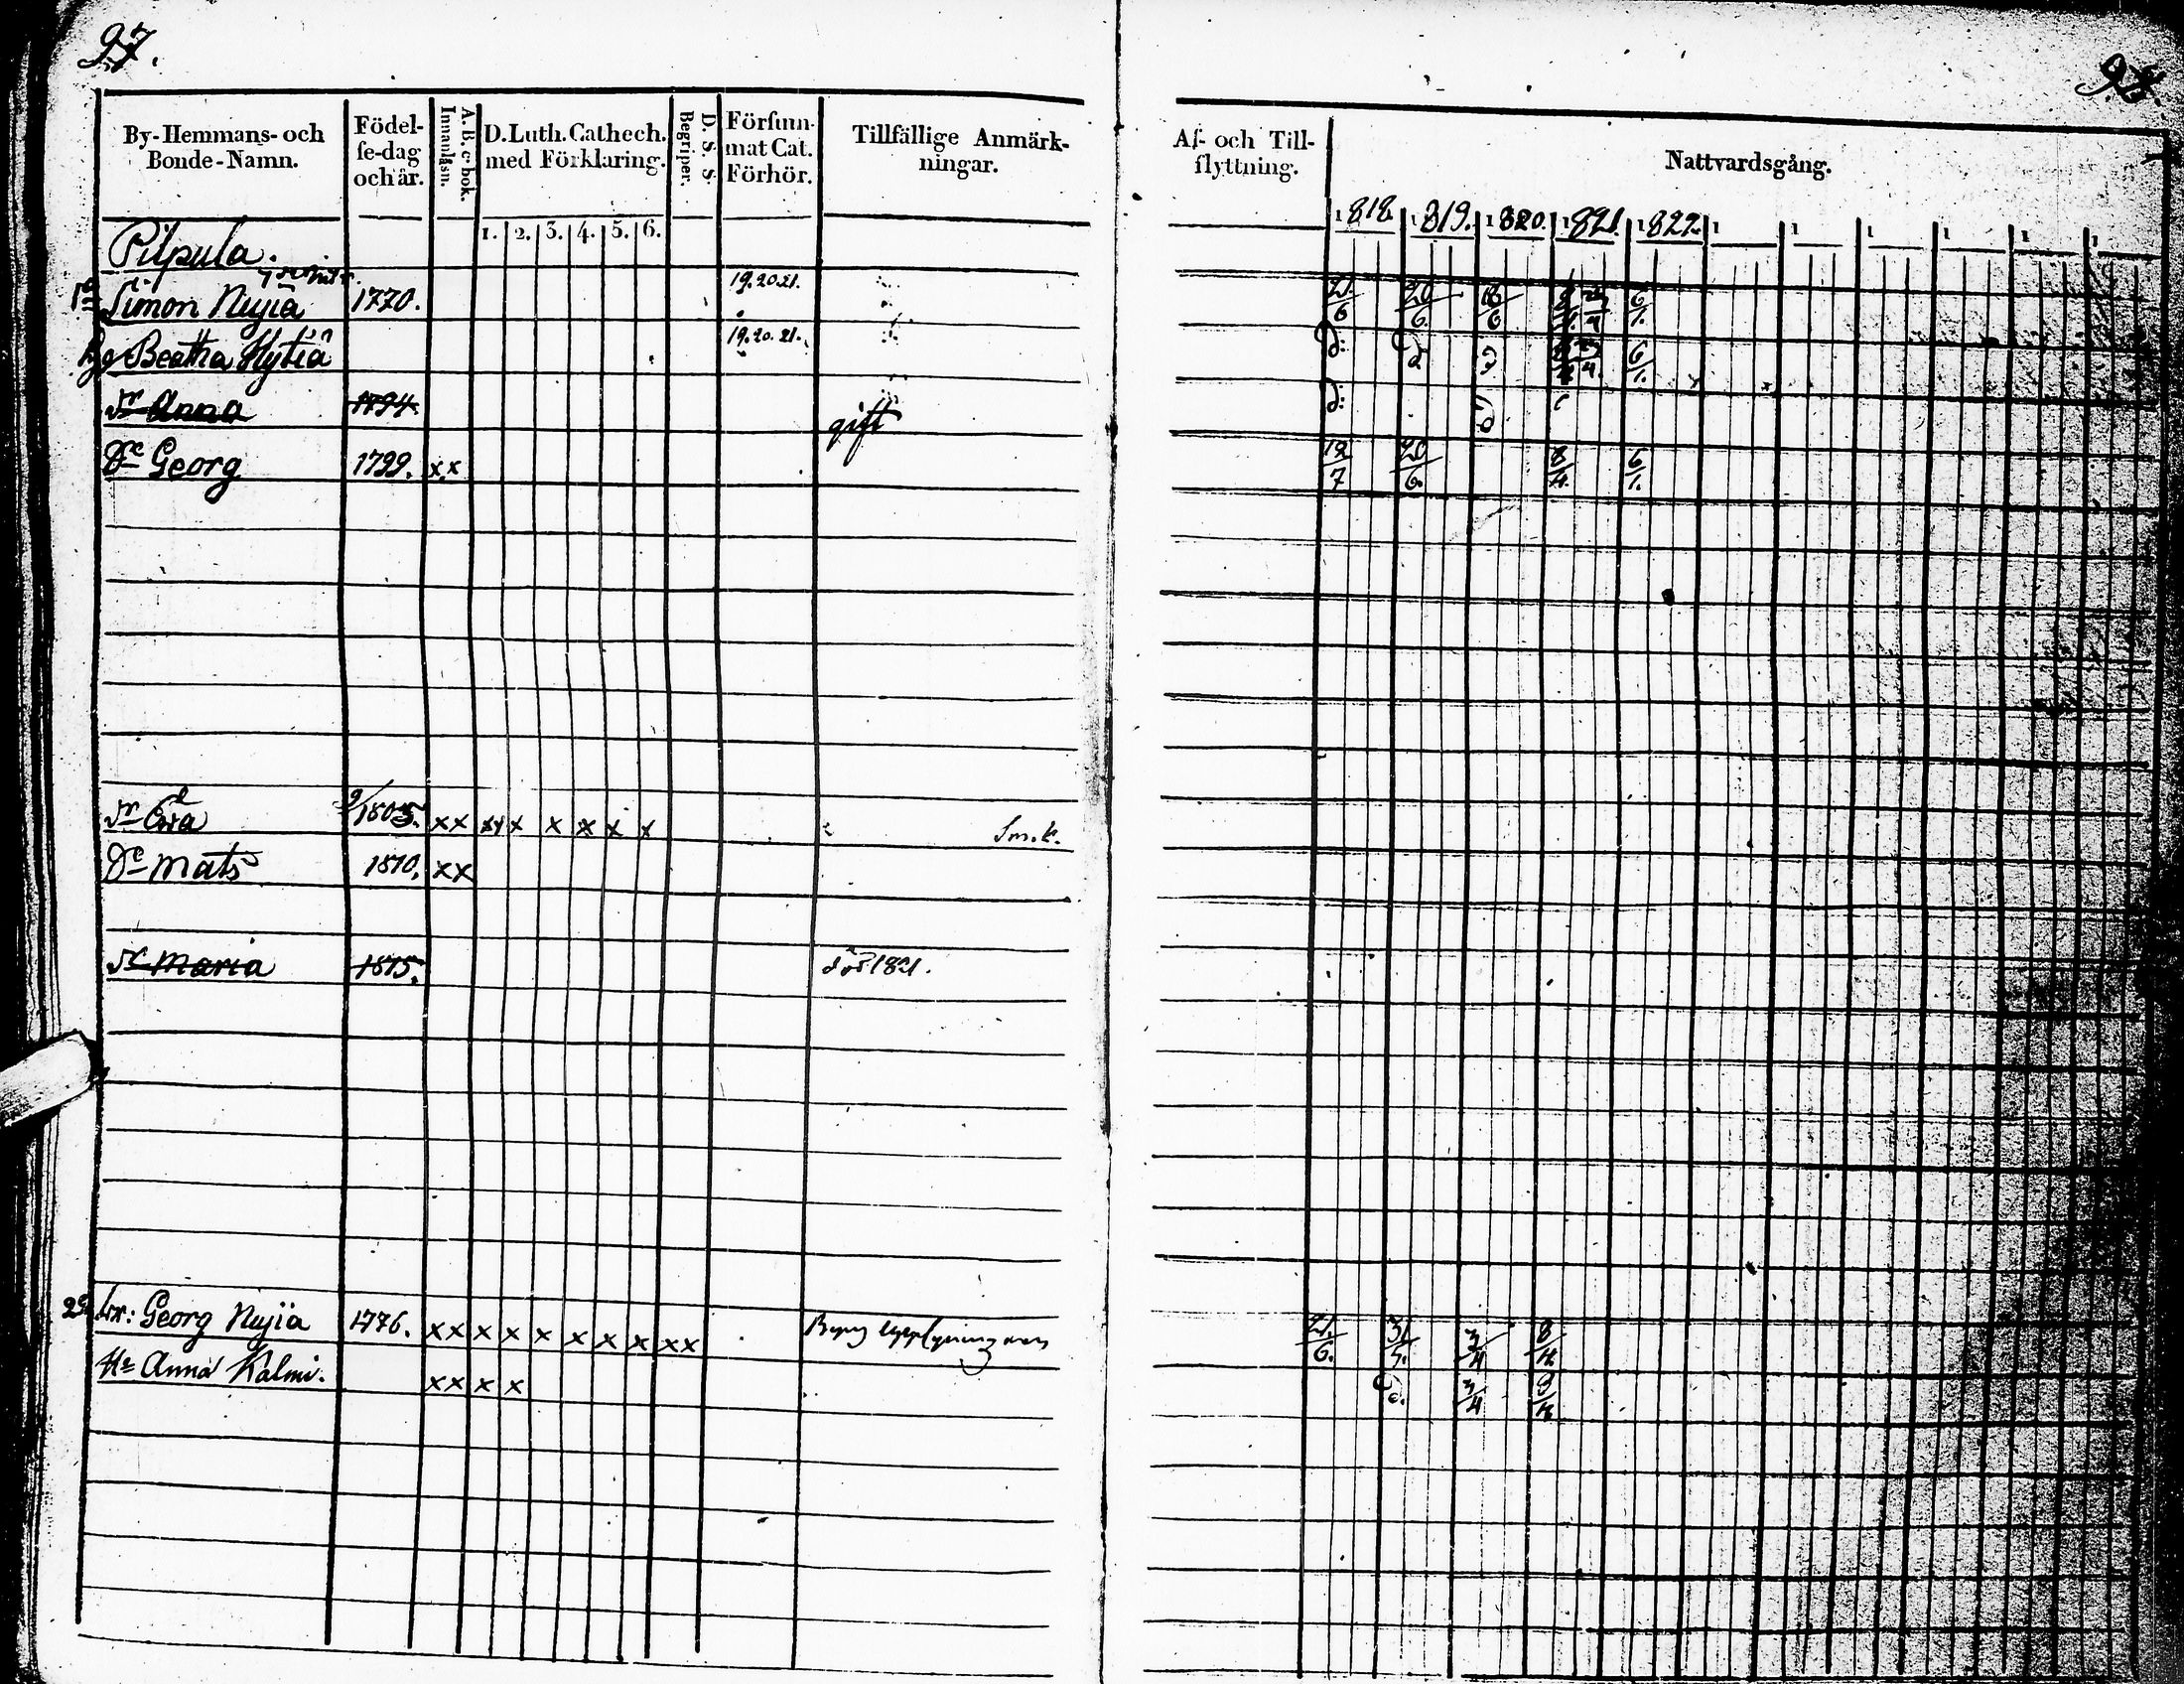 97.
98.
By-Hemmans- och Bonde-Namn.
Födel-se-dag och år.
A. B. c bok. Innanläsn.
D. Luth. Cathech. med Förklaring.
D. S. S. Begriper.
Försum-mat Cat. Förhör.
Tillfällige Anmärk-ningar.
Af- och Till-flyttning.
Nattvardsgång.
1. 2. 3. 4. 5. 6.
1818. 1819. 1820. 1821. 1822. 1 1 1 1 1 1
Pilpula.
Simon Nujia 1770. 19.20.21. 21/6 20/6 18/6 6/1.
Beatha Hytiä 19.20.21. 6/1.
Anna 1794. gift
Georg 1799. xx 18/7 20/6 8/4. 6/1.
Eva 1805. xx x x x x x
Mats 1810. xx
Maria 1815. död 1821.
Georg Nujia 1776. xx x x x x x x xx 21/6. 31/5. 3/4 8/4
Anna Kalmi. xx x x 3/4 8/4